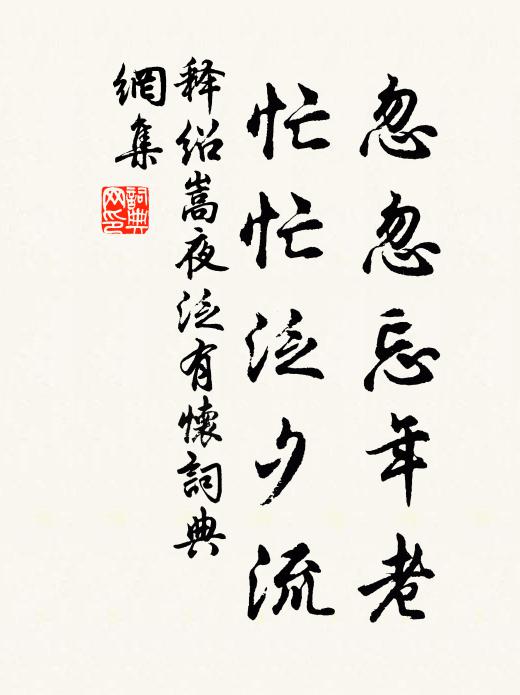 忽忽忘年老
忙忙泛夕流
释绍嵩夜泛有懷詞典
網集
詞典
网印